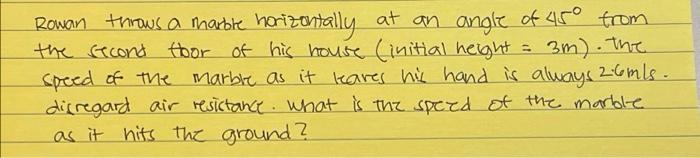 Rowan throws a marble horizontally at an angle of 45° from
the second floor of his house (initial height = 3m). The
speed of the marble as it leaves his hand is always 2.6m/s.
disregard air resistance. What is the speed of the marble
as it hits the ground?